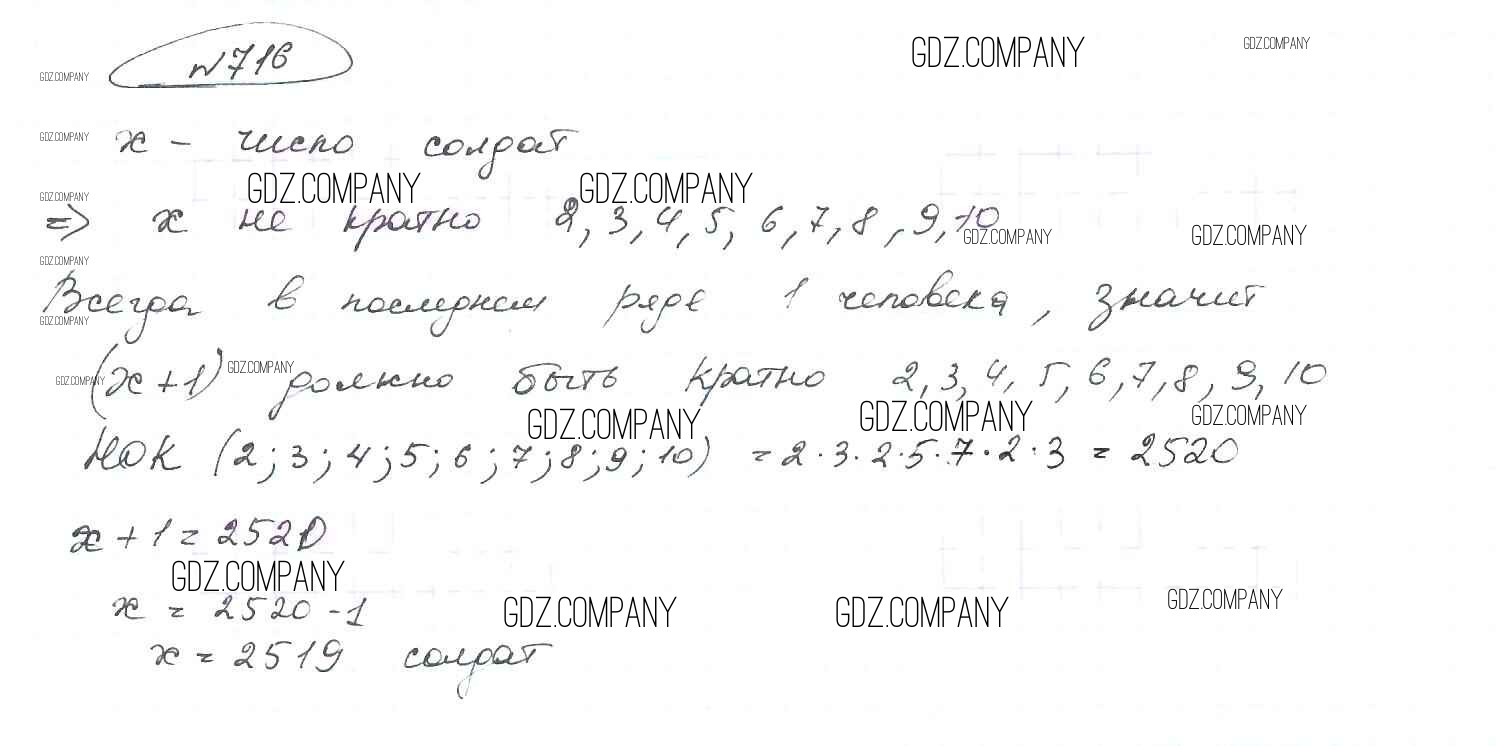 №716
GDZ.COMPANY GDZ.COMPANY
GDZ.COMPANY
GDZ.COMPANY
x - число солдат
GDZ.COMPANY GDZ.COMPANY GDZ.COMPANY
=> x не кратно 2, 3, 4, 5, 6, 7, 8, 9, 10
GDZ.COMPANY GDZ.COMPANY
GDZ.COMPANY
Всегда в последнем ряде 1 человека, значит
GDZ.COMPANY
GDZ.COMPANY GDZ.COMPANY
(x+1) должно быть кратно 2, 3, 4, 5, 6, 7, 8, 9, 10
GDZ.COMPANY GDZ.COMPANY GDZ.COMPANY
НОК (2; 3; 4; 5; 6; 7; 8; 9; 10) = 2·3·2·5·7·2·3 = 2520
x + 1 = 2520
GDZ.COMPANY
x = 2520 - 1
GDZ.COMPANY GDZ.COMPANY GDZ.COMPANY
x = 2519 солдат